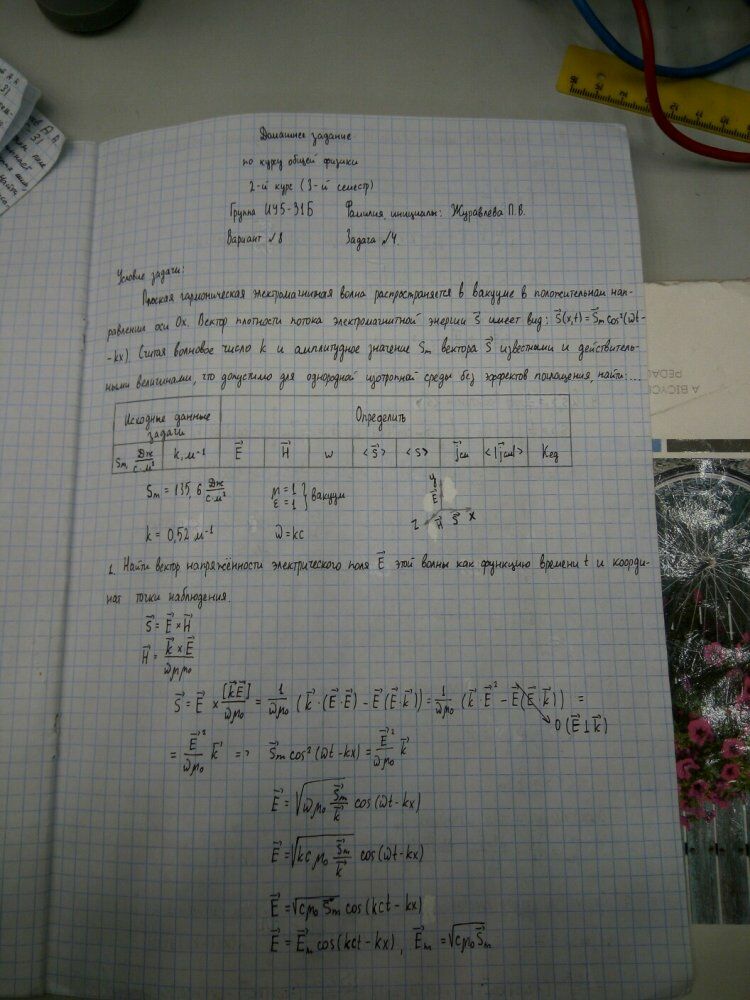 Домашнее задание
по курсу общей физики
2-й курс (3-й семестр)
Группа ИУ5-31Б Фамилия, инициалы: Журавлева П.В.
Вариант №8 Задача №4.
Условие задачи:
Плоская гармоническая электромагнитная волна распространяется в вакууме в положительном нап-
равлении оси Ox. Вектор плотности потока электромагнитной энергии S⃗ имеет вид: S⃗(x,t)=S⃗m cos²(ωt-
-kx). Считая волновое число k и амплитудное значение Sm вектора S⃗ известными и действитель-
ными величинами, что допустимо для однородной изотропной среды без эффектов поглощения, найти:....
Исходные данные задачи Определить
Sm, Дж/с·м² k, м⁻¹ E⃗ H⃗ ω <S⃗> <S> j⃗см <|j⃗см|> Kед
Sm = 135,6 Дж/с·м² μ=1 ε=1 } вакуум
y E⃗
z H⃗ S⃗ x
k = 0,52 м⁻¹ ω=kc
1. Найти вектор напряжённости электрического поля E⃗ этой волны как функцию времени t и коорди-
нат точки наблюдения.
S⃗ = E⃗ × H⃗
H⃗ = (k⃗ × E⃗)/(ωμμ₀)
S⃗ = E⃗ × [k⃗E⃗]/(ωμ₀) = 1/(ωμ₀) (k⃗·(E⃗·E⃗) - E⃗(E⃗·k⃗)) = 1/(ωμ₀) (k⃗·E⃗² - E⃗(E⃗·k⃗)) =
0 (E⃗⊥k⃗)
= E⃗²/(ωμ₀) k⃗ => S⃗m cos²(ωt-kx) = E⃗²/(ωμ₀) k⃗
E⃗ = √(ωμ₀ S⃗m/k⃗) cos(ωt-kx)
E⃗ = √(kcμ₀ S⃗m/k⃗) cos(ωt-kx)
E⃗ = √(cμ₀ S⃗m) cos(kct-kx)
E⃗ = E⃗m cos(kct-kx), E⃗m = √(cμ₀S⃗m)
A BICYC
PEDA